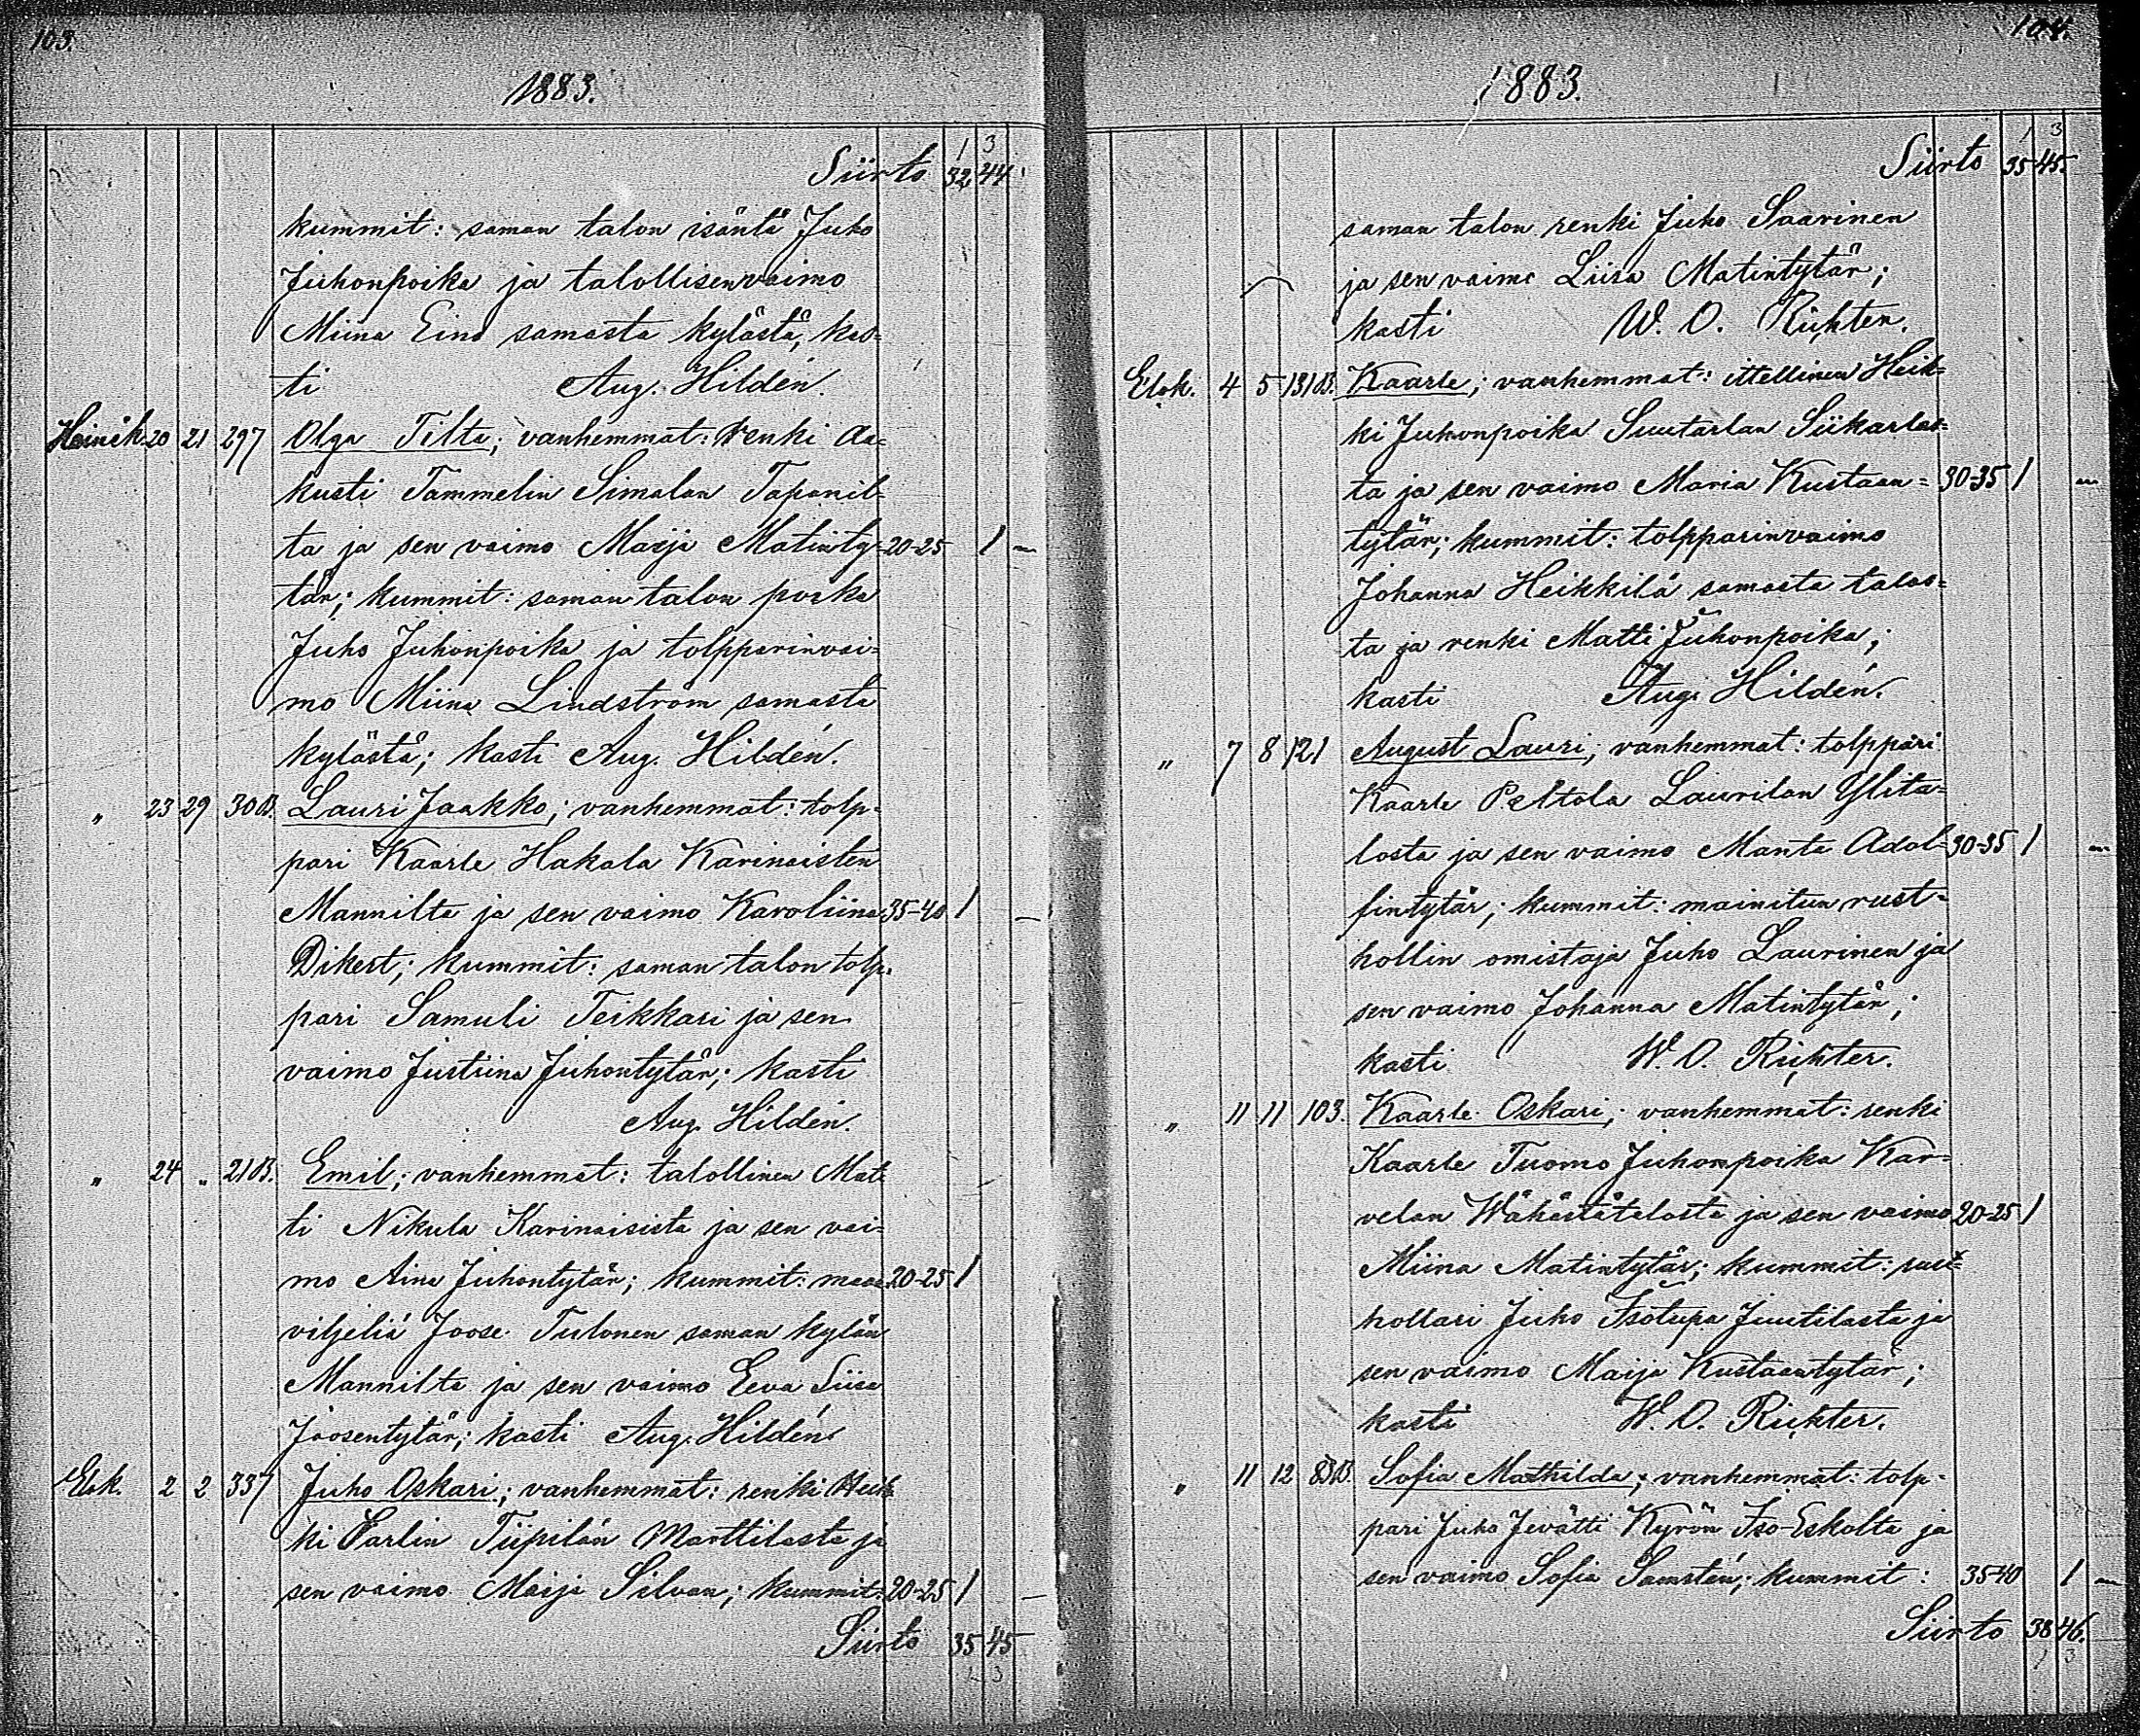 103.
1883.
1 3
Siirto 32 44
kummit: saman talon isäntä Juho
Juhonpoika ja talollisenvaimo
Miina Eino samasta kylästä, kas=
ti Aug. Hildén.
Heinäk. 20 21 297 Olga Tilta; vanhemmat: renki Aa=
kusti Tammelin Simalan Tapanil=
ta ja sen vaimo Maija Matinty= 20-25 1 -
tär; kummit: saman talon poika
Juho Juhonpoika ja tolpparinvai=
mo Miina Lindström samasta
kylästä; kasti Aug. Hildén.
" 23 29 30B. Lauri Jaakko; vanhemmat: tolp=
pari Kaarle Hakala Karinaisten
Mannilta ja sen vaimo Karoliina 35-40 1 -
Dikert; kummit: saman talon tolp=
pari Samuli Teikkari ja sen
vaimo Justiina Juhontytär; kasti
Aug. Hildén.
" 24 " 21B. Emil; vanhemmat: talollinen Mat=
ti Nikula Karinaisista ja sen vai=
mo Aina Juhontytär; kummit: maan 20-25 1
viljeliä Joose Tulonen saman kylän
Mannilta ja sen vaimo Eeva Liisa
Joosentytär; kasti Aug. Hildén
Elok. 2 2 337 Juho Oskari; vanhemmat: renki Heik=
ki Parlin Tiipilän Marttilasta ja
sen vaimo Maija Silvan; kummit: 20-25 1 -
Siirto 35 45
1 3
104.
1883.
1 3
Siirto 35 45.
saman talon renki Juho Saarinen
ja sen vaimo Liisa Matintytär;
kasti W. O. Richter.
Elok. 4 5 131B. Kaarle; vanhemmat: ittellinen Heik=
ki Juhonpoika Suutarlan Siikarlas=
ta ja sen vaimo Maria Kustaan= 30-35 1 -
tytär; kummit: tolpparinvaimo
Johanna Heikkilä samasta talos=
ta ja renki Matti Juhonpoika;
kasti Aug. Hildén.
" 7 8 121 August Lauri; vanhemmat: tolppari
Kaarle Peltola Laurilan Ylita=
losta ja sen vaimo Manta Adol= 30-35 1 -
fintytär; kummit: mainitun rust=
hollin omistaja Juho Laurinen ja
sen vaimo Johanna Matintytär;
kasti W. O. Richter.
" 11 11 103. Kaarle Oskari; vanhemmat: renki
Kaarle Tuomo Juhonpoika Kar=
velan Wähästätalosta ja sen vaimo 20-25 1
Miina Matintytär; kummit: rust=
hollari Juho Isotupa Juutilasta ja
sen vaimo Maija Kustaantytär;
kasti W. O. Richter.
" 11 12 83B. Sofia Mathilda; vanhemmat: tolp=
pari Juho Jevätti Kyrön Iso-Eskolta ja
sen vaimo Sofia Samstén; kummit: 35-40 1 -
Siirto 38 46.
1 3